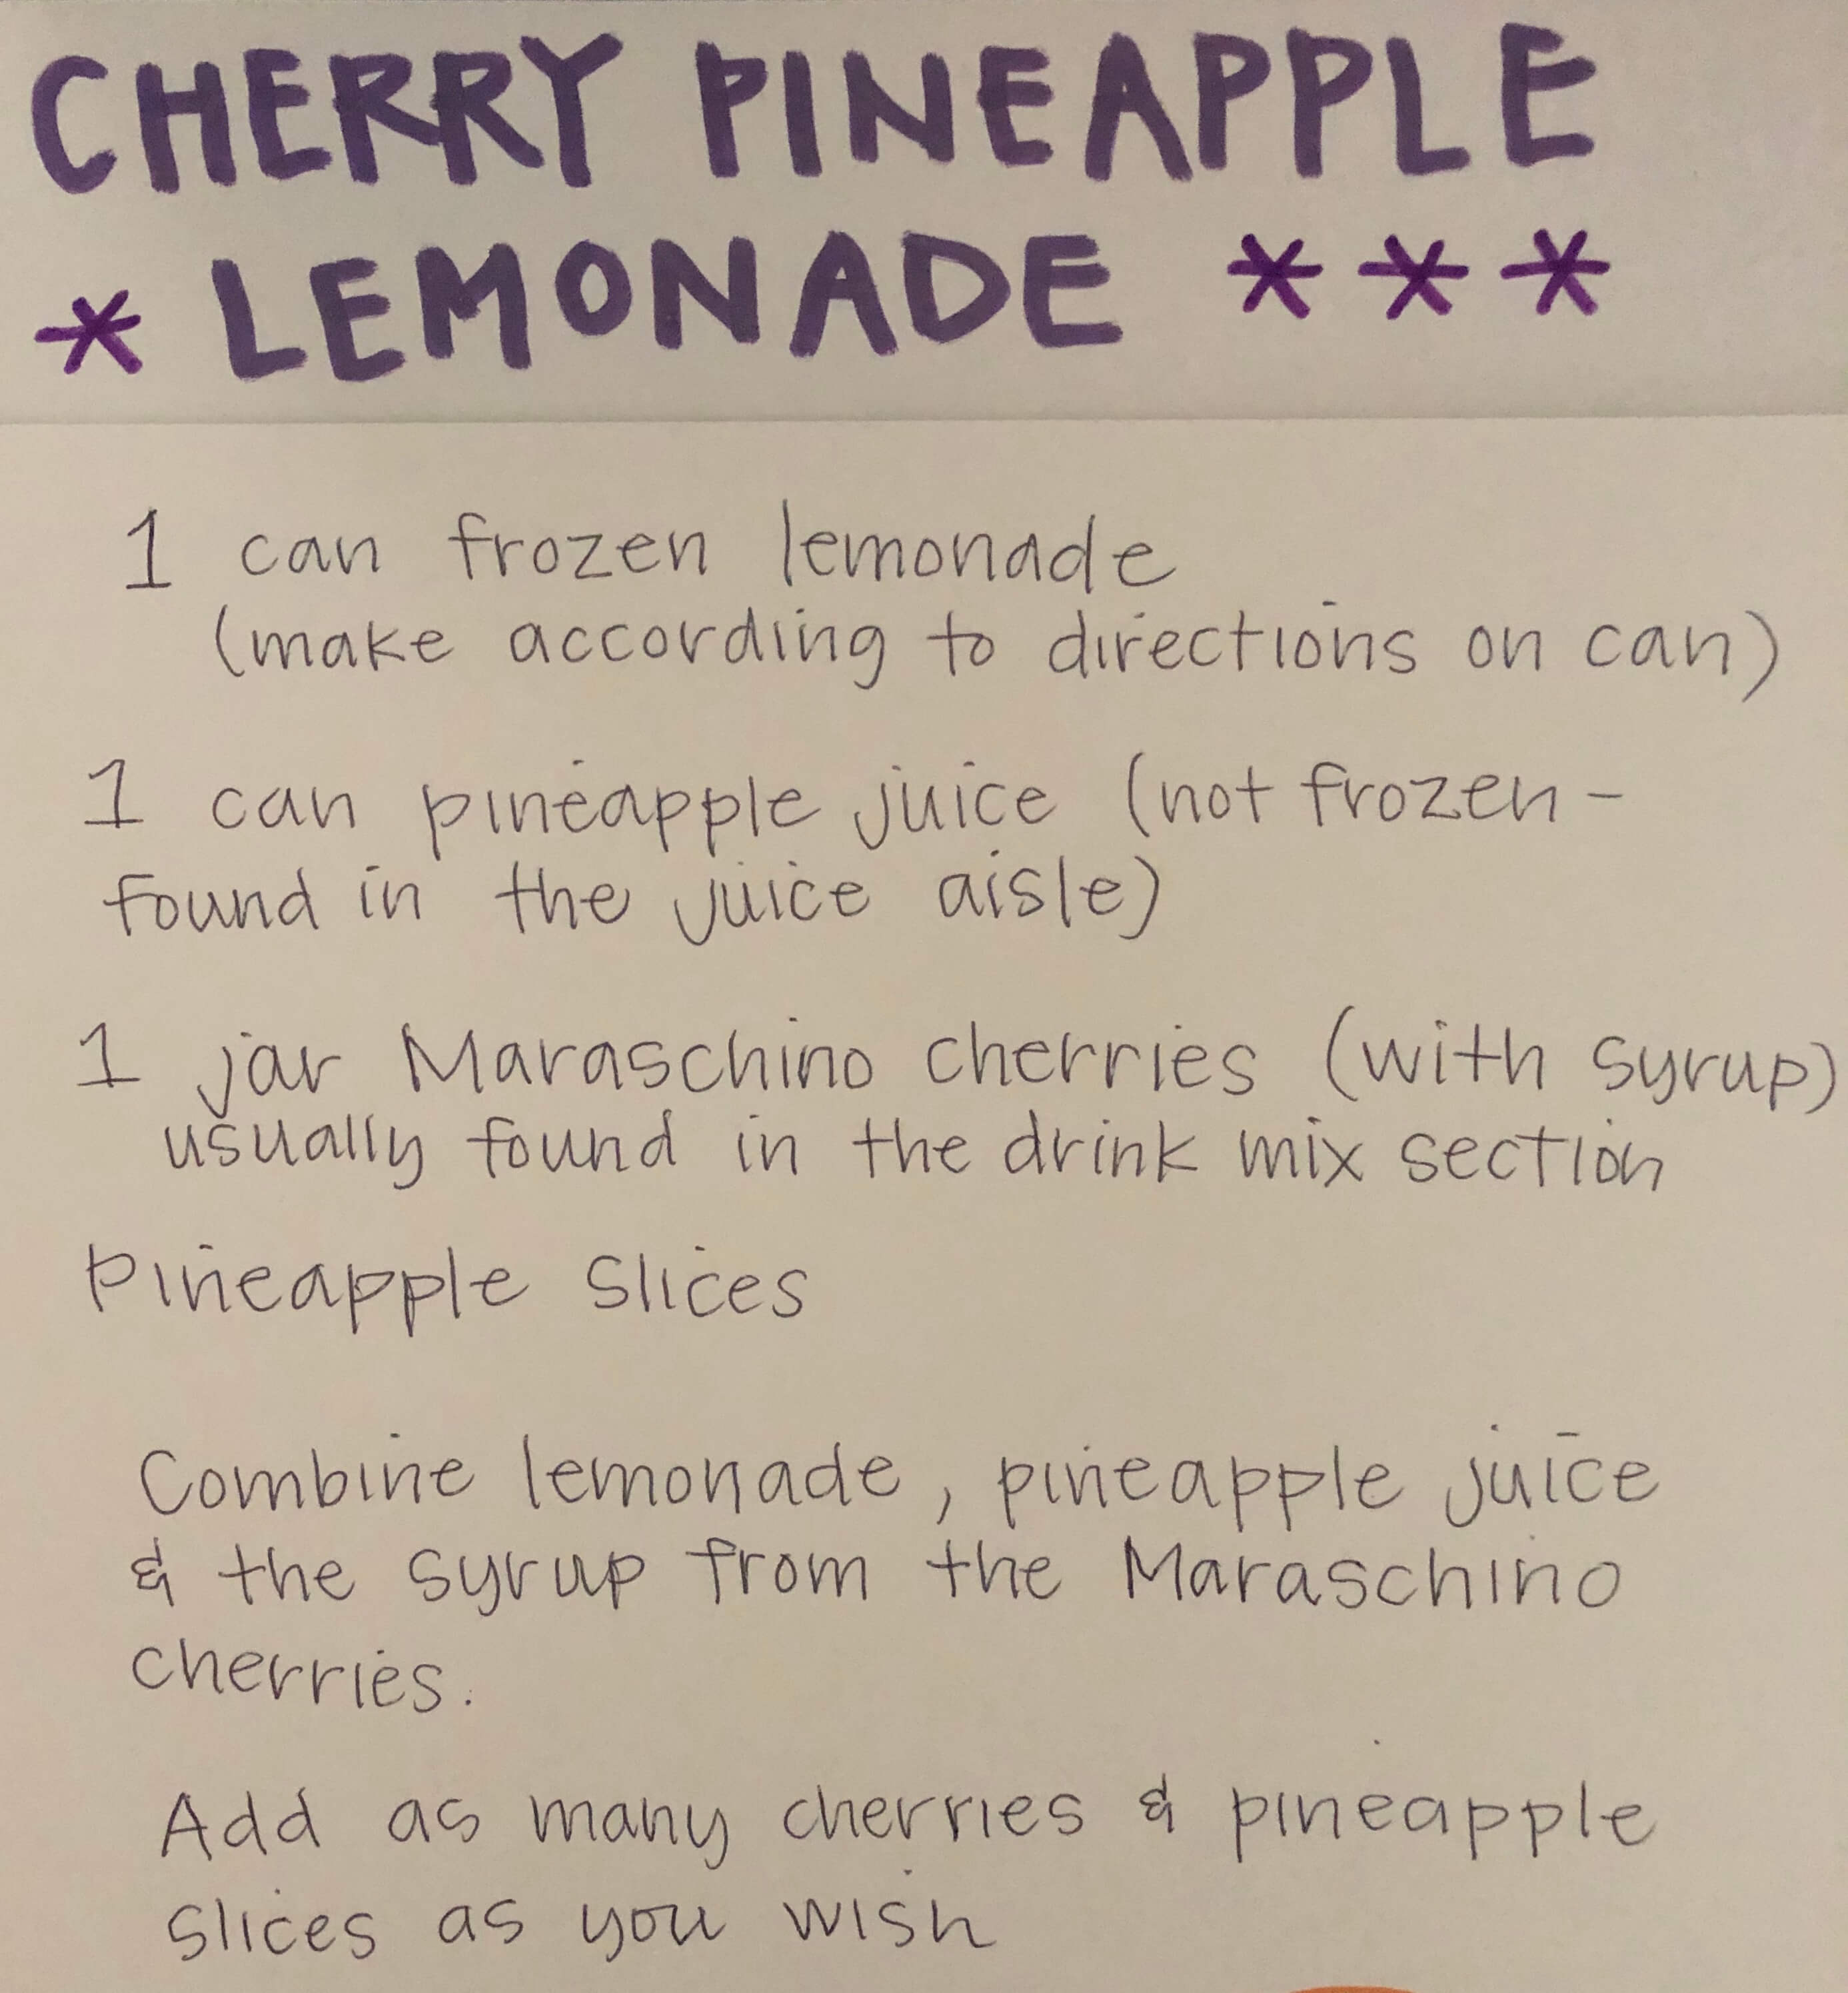 CHERRY PINEAPPLE
* LEMONADE ***
1 can frozen lemonade
(make according to directions on can)
1 can pineapple juice (not frozen-
found in the juice aisle)
1 jar Maraschino cherries (with syrup)
usually found in the drink mix section
Pineapple slices
Combine lemonade, pineapple juice
& the syrup from the Maraschino
cherries.
Add as many cherries & pineapple
slices as you wish